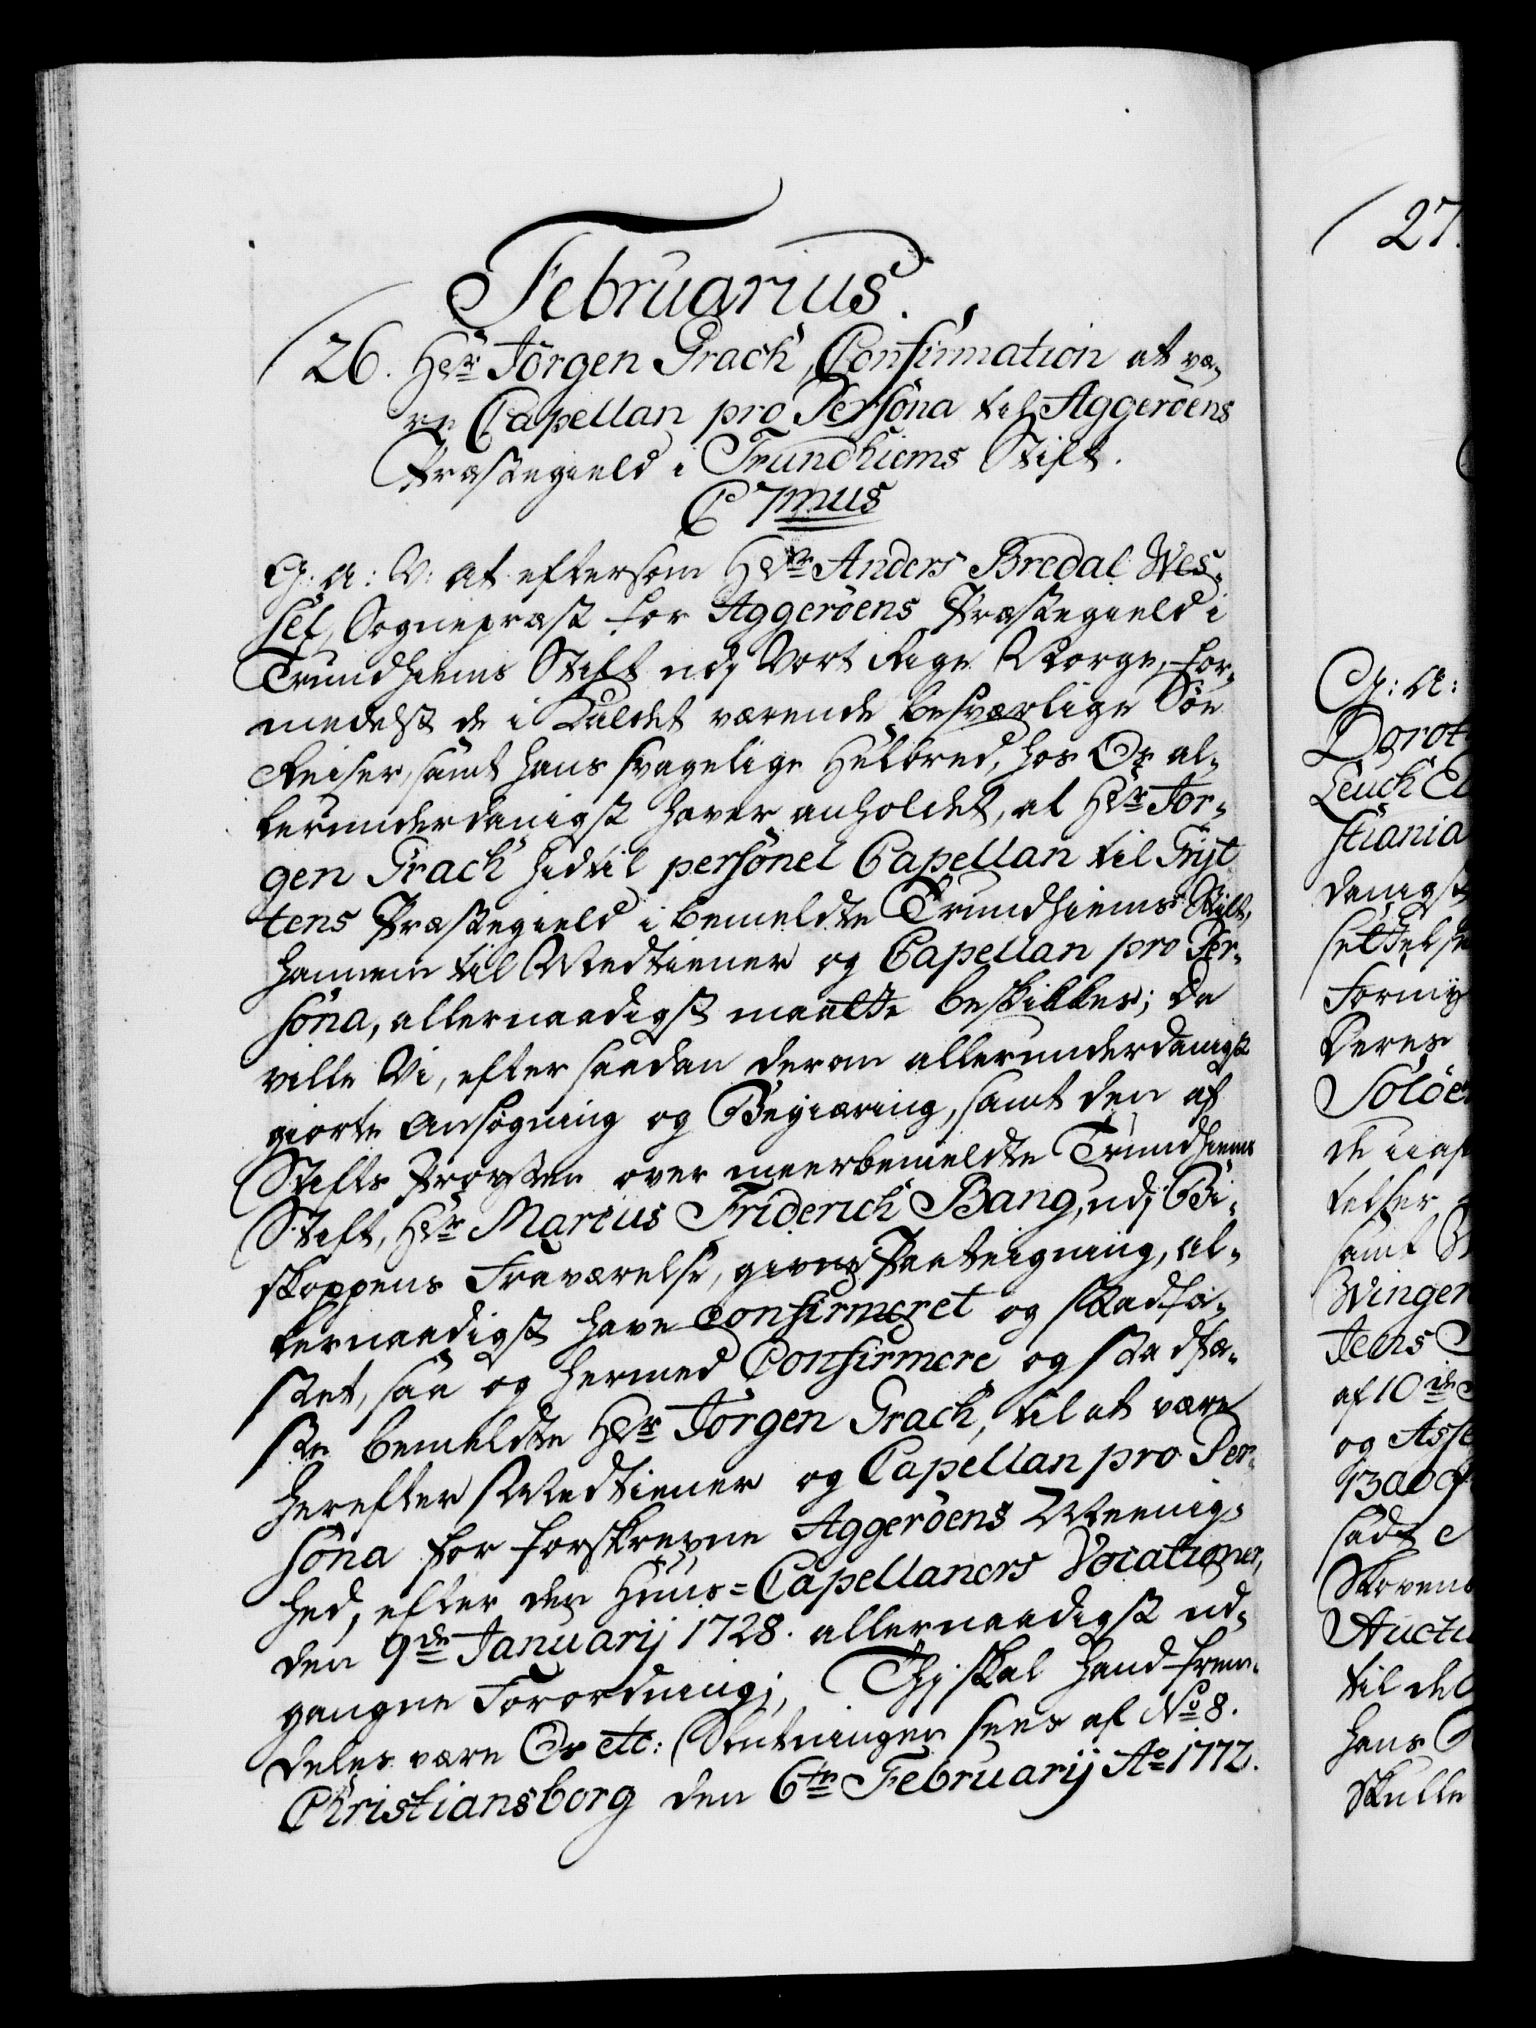 Februarius.
26. Hr Jörgen Grach, Confirmation at væ-
re Capellan pro Persona til Aggeröens
Præstegield i Trundhiems Stift.
C 7mus
G: A: V: at eftersom Hr Anders Bredal Wes-
sel, Sognepræst for Aggeröens Præstegield i
Trundhiems Stift udj Vort Rige Norge, for-
medelst de i Kaldet værende besværlige Söe
Reiser, samt hans svagelige Helbred, hos Os al-
lerunderdanigst haver anholdet, at Hr Jör-
gen Grach hidtil personel Capellan til Tryt-
tens Præstegield i bemeldte Trundhiems Stift,
hannem til Medtiener og Capellan pro Per-
sona, allernaadigst maatte beskikkes; Da
ville Vi, efter saadan derom allerunderdanigst
giorte Ansögning og Begiæring, samt den af
Stifts Provsten over meerbemeldte Trundhiems
Stift, Hr Marcus Friderich Bang, udj Bi-
skoppens Fraværelse, givne Paateigning, al-
lernaadigst have confirmeret og stadfæ-
stet, saa og hermed Confirmere og stadfæ-
ste bemeldte Hr Jörgen Grach, til at være
herefter Medtiener og Capellan pro Per-
sona for forskrevne Aggeröens Meenig-
hed, efter den Huus-Capellaners Vocationer,
den 9de Januarij 1728. allernaadigst ud-
gangne Forordning; Thj skal hand frem-
deles være Os etc: Slutningen sees af No 8.
Christiansborg den 6te Februarij Ao 1772.
27.
G: A:
Dorot
Leuch El
stiania
danigst
Formy
Deres
Solöe
Winger
Jens
af 10de
og Asse
13 aug
Skoven
Auctu
til del
hans
skulle